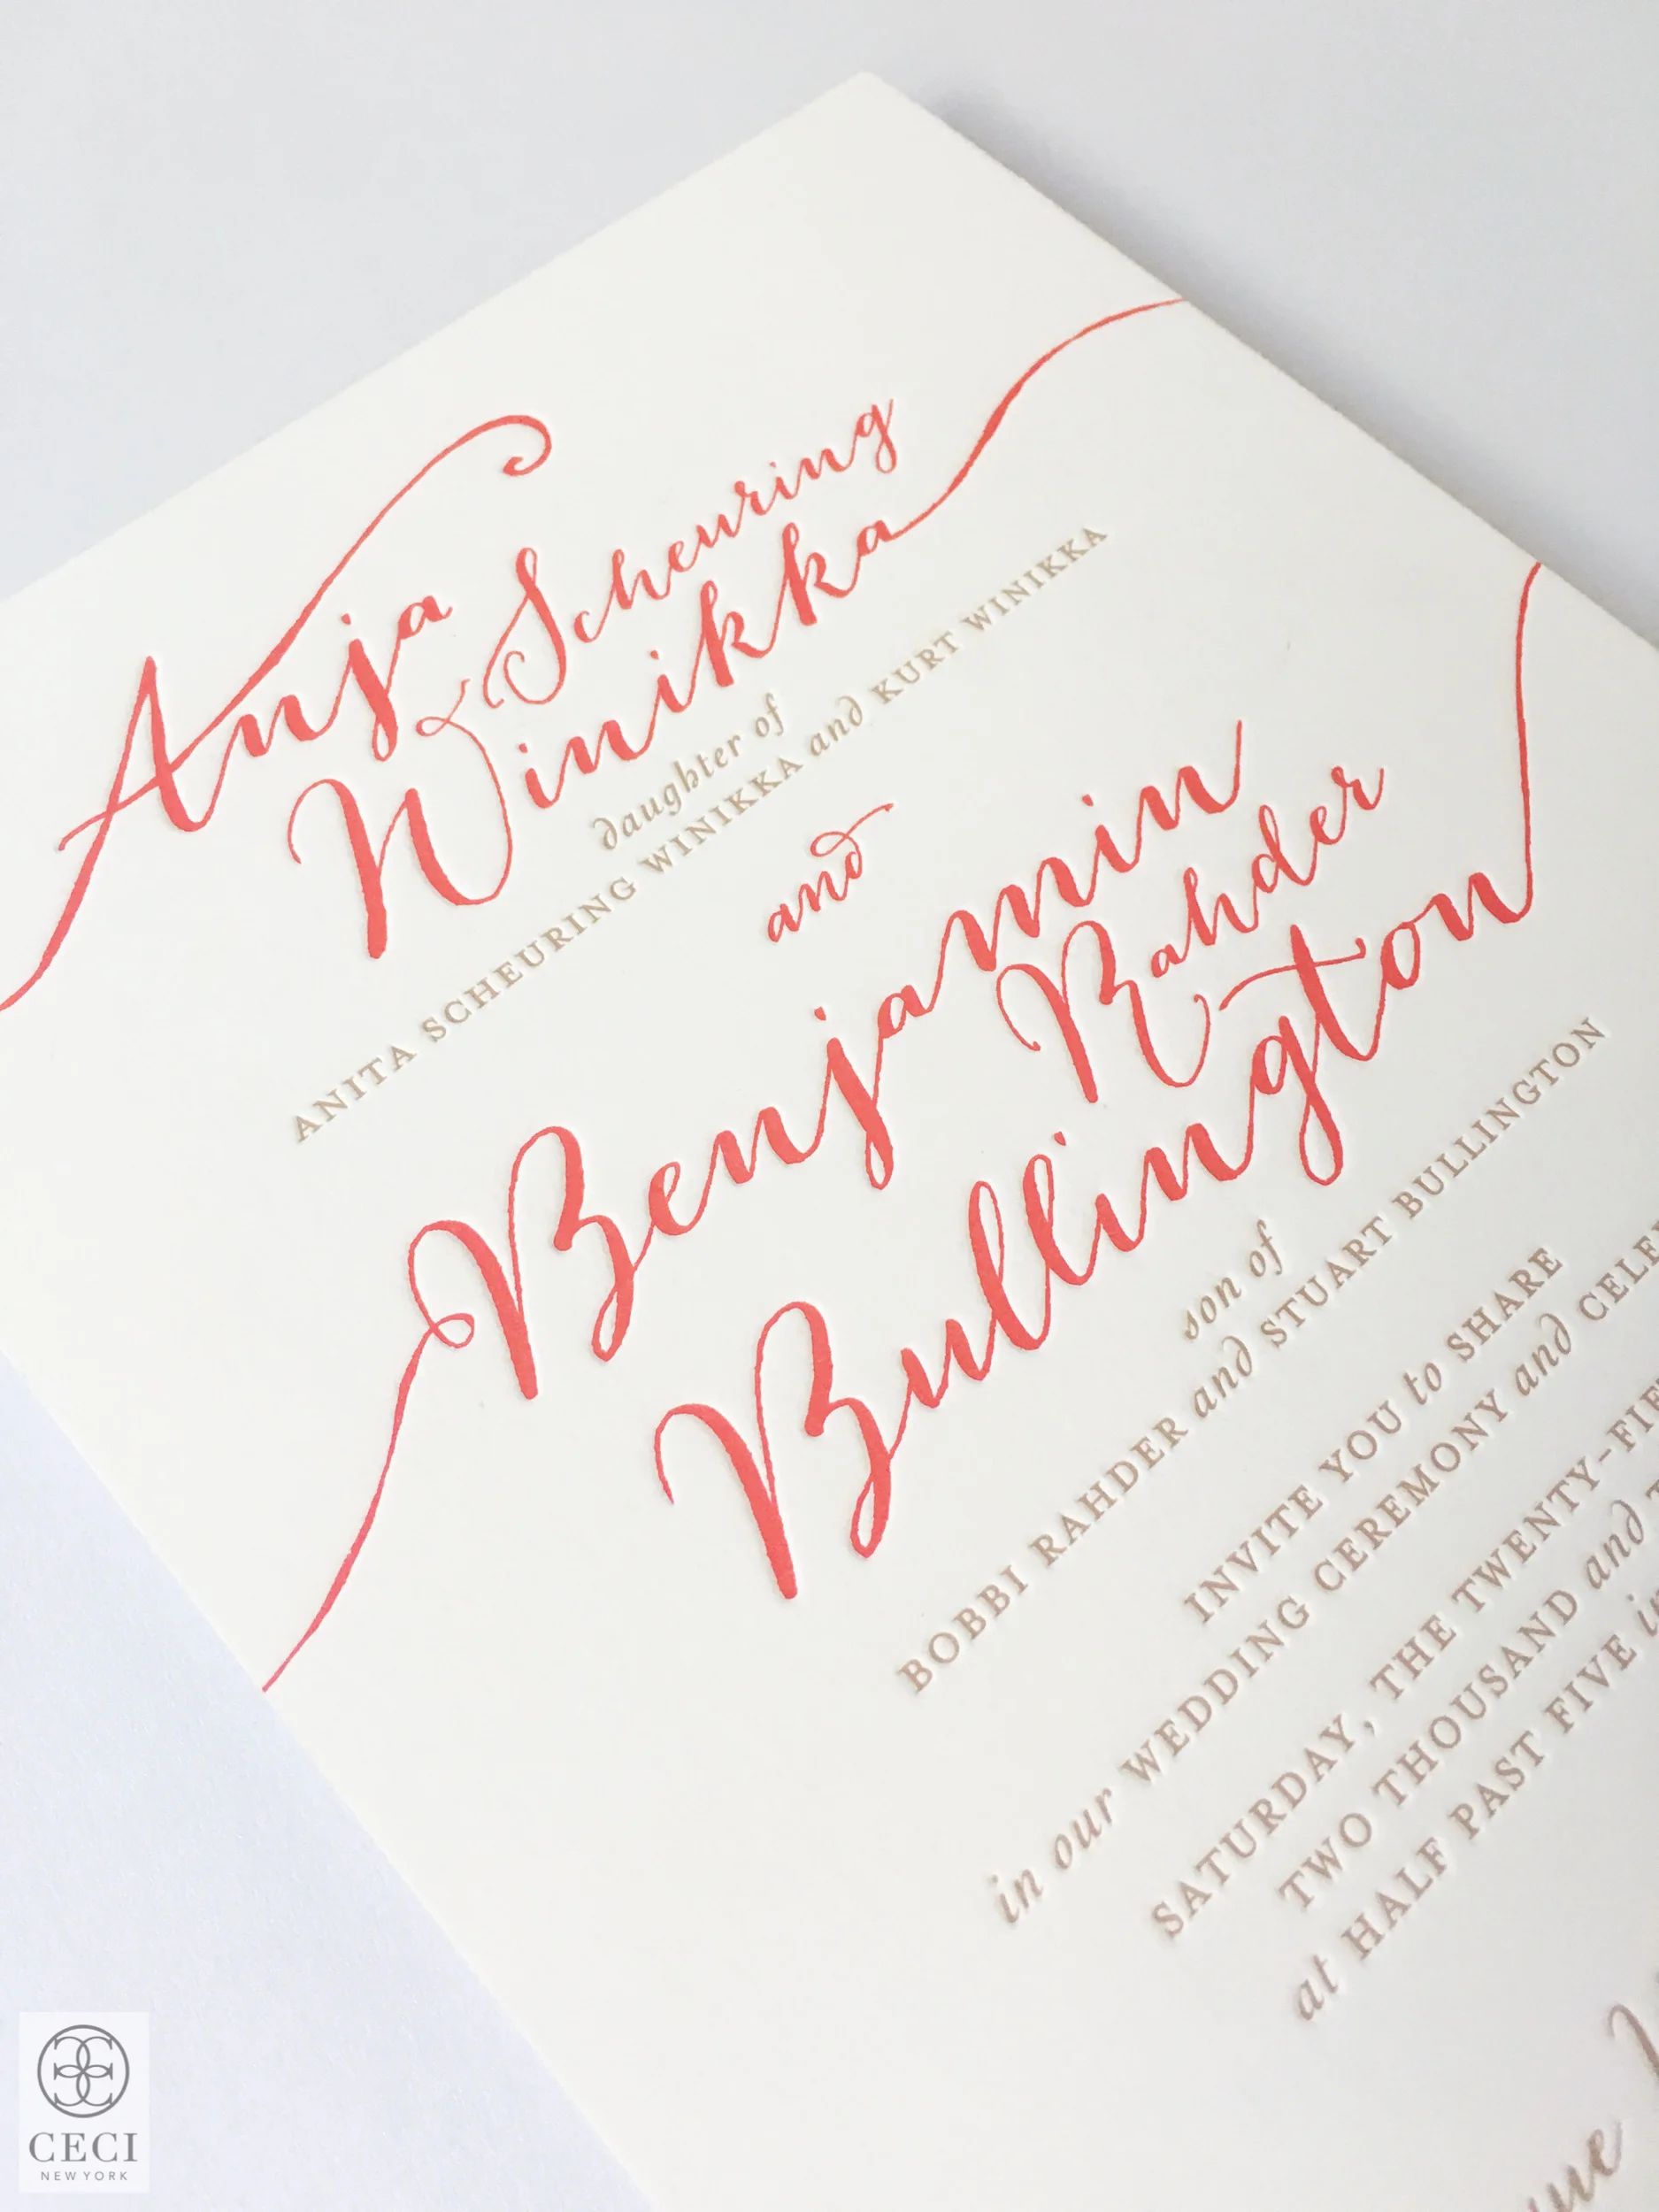 Anja Scheuring
Winikka
daughter of
ANITA SCHEURING WINIKKA and KURT WINIKKA
and
Benjamin
Rahder
Bullington
son of
BOBBI RAHDER and STUART BULLINGTON
INVITE YOU to SHARE
in our WEDDING CEREMONY and
SATURDAY, THE
TWO THOUSAND and
at HALF PAST FIVE
CECI
NEW YORK